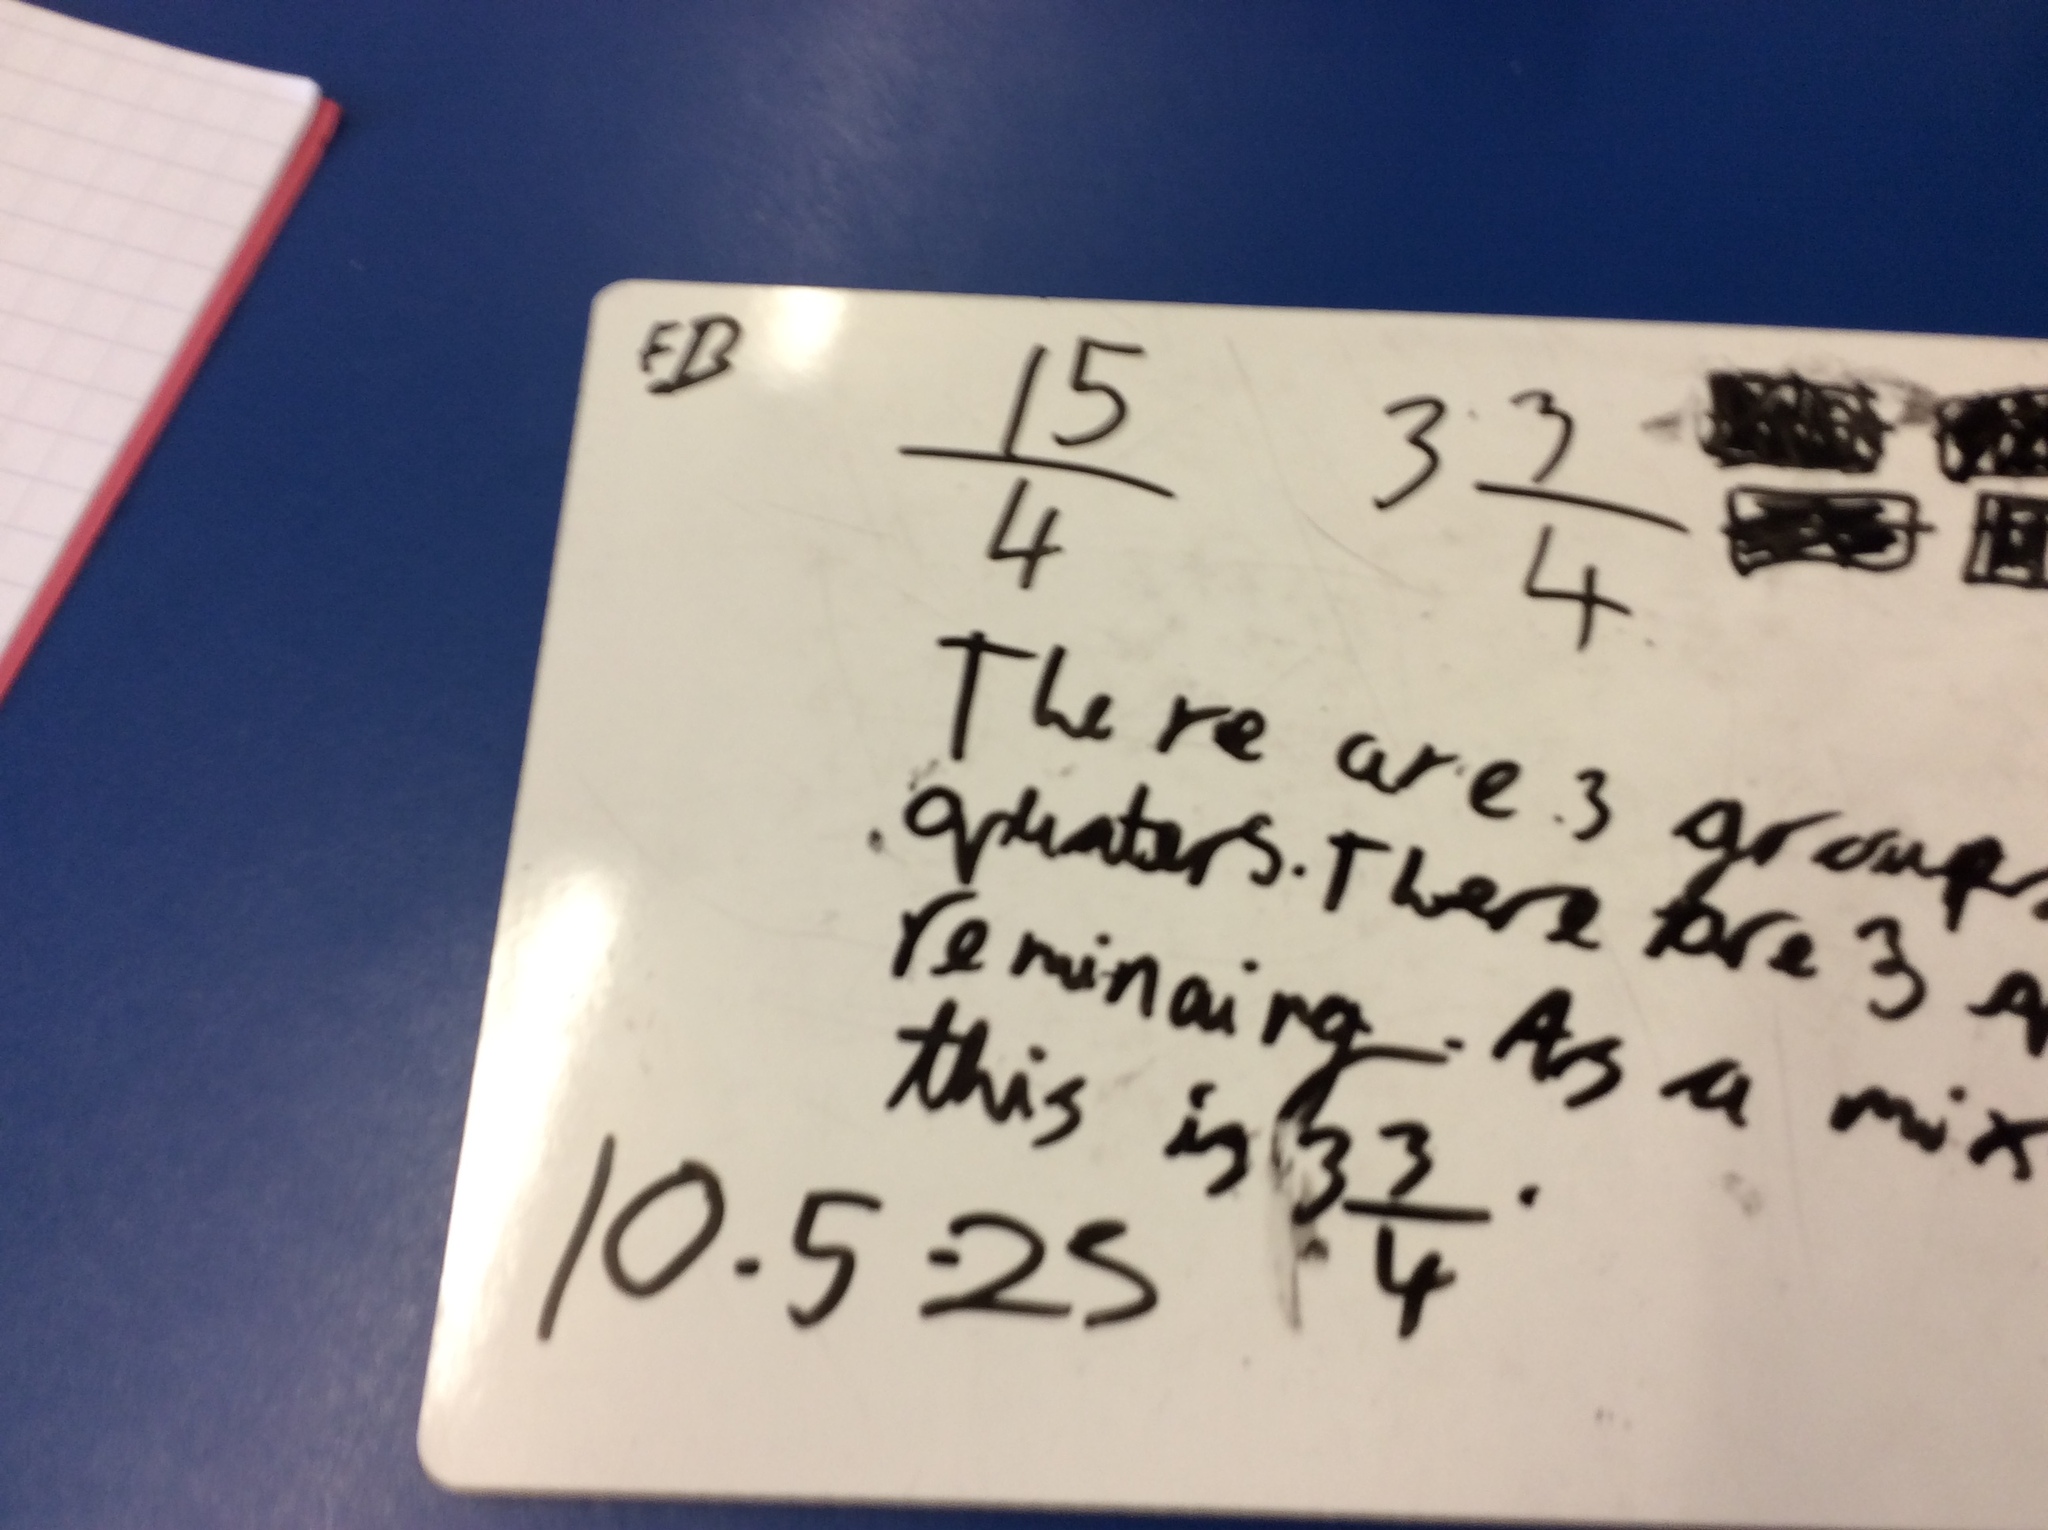 EB
15/4 3 3/4
There are 3 groups
quaters. There are 3 q
reminaing. As a mix
this is 3 3/4.
10.5=25